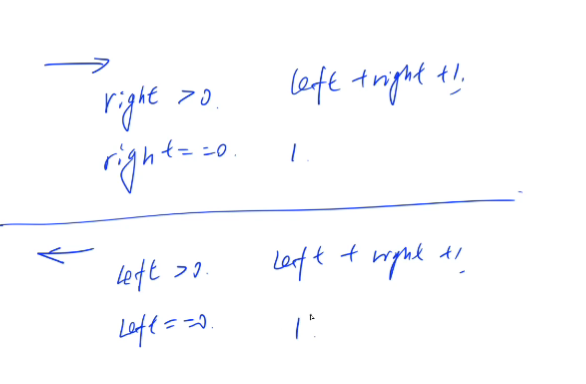 →
right >0. left + right +1.
right==0. 1.
←
left >0. left + right +1.
left==0. 1.